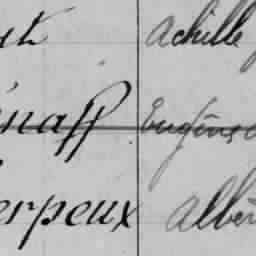 ut Achille
naff Eugène
erpeux Albert